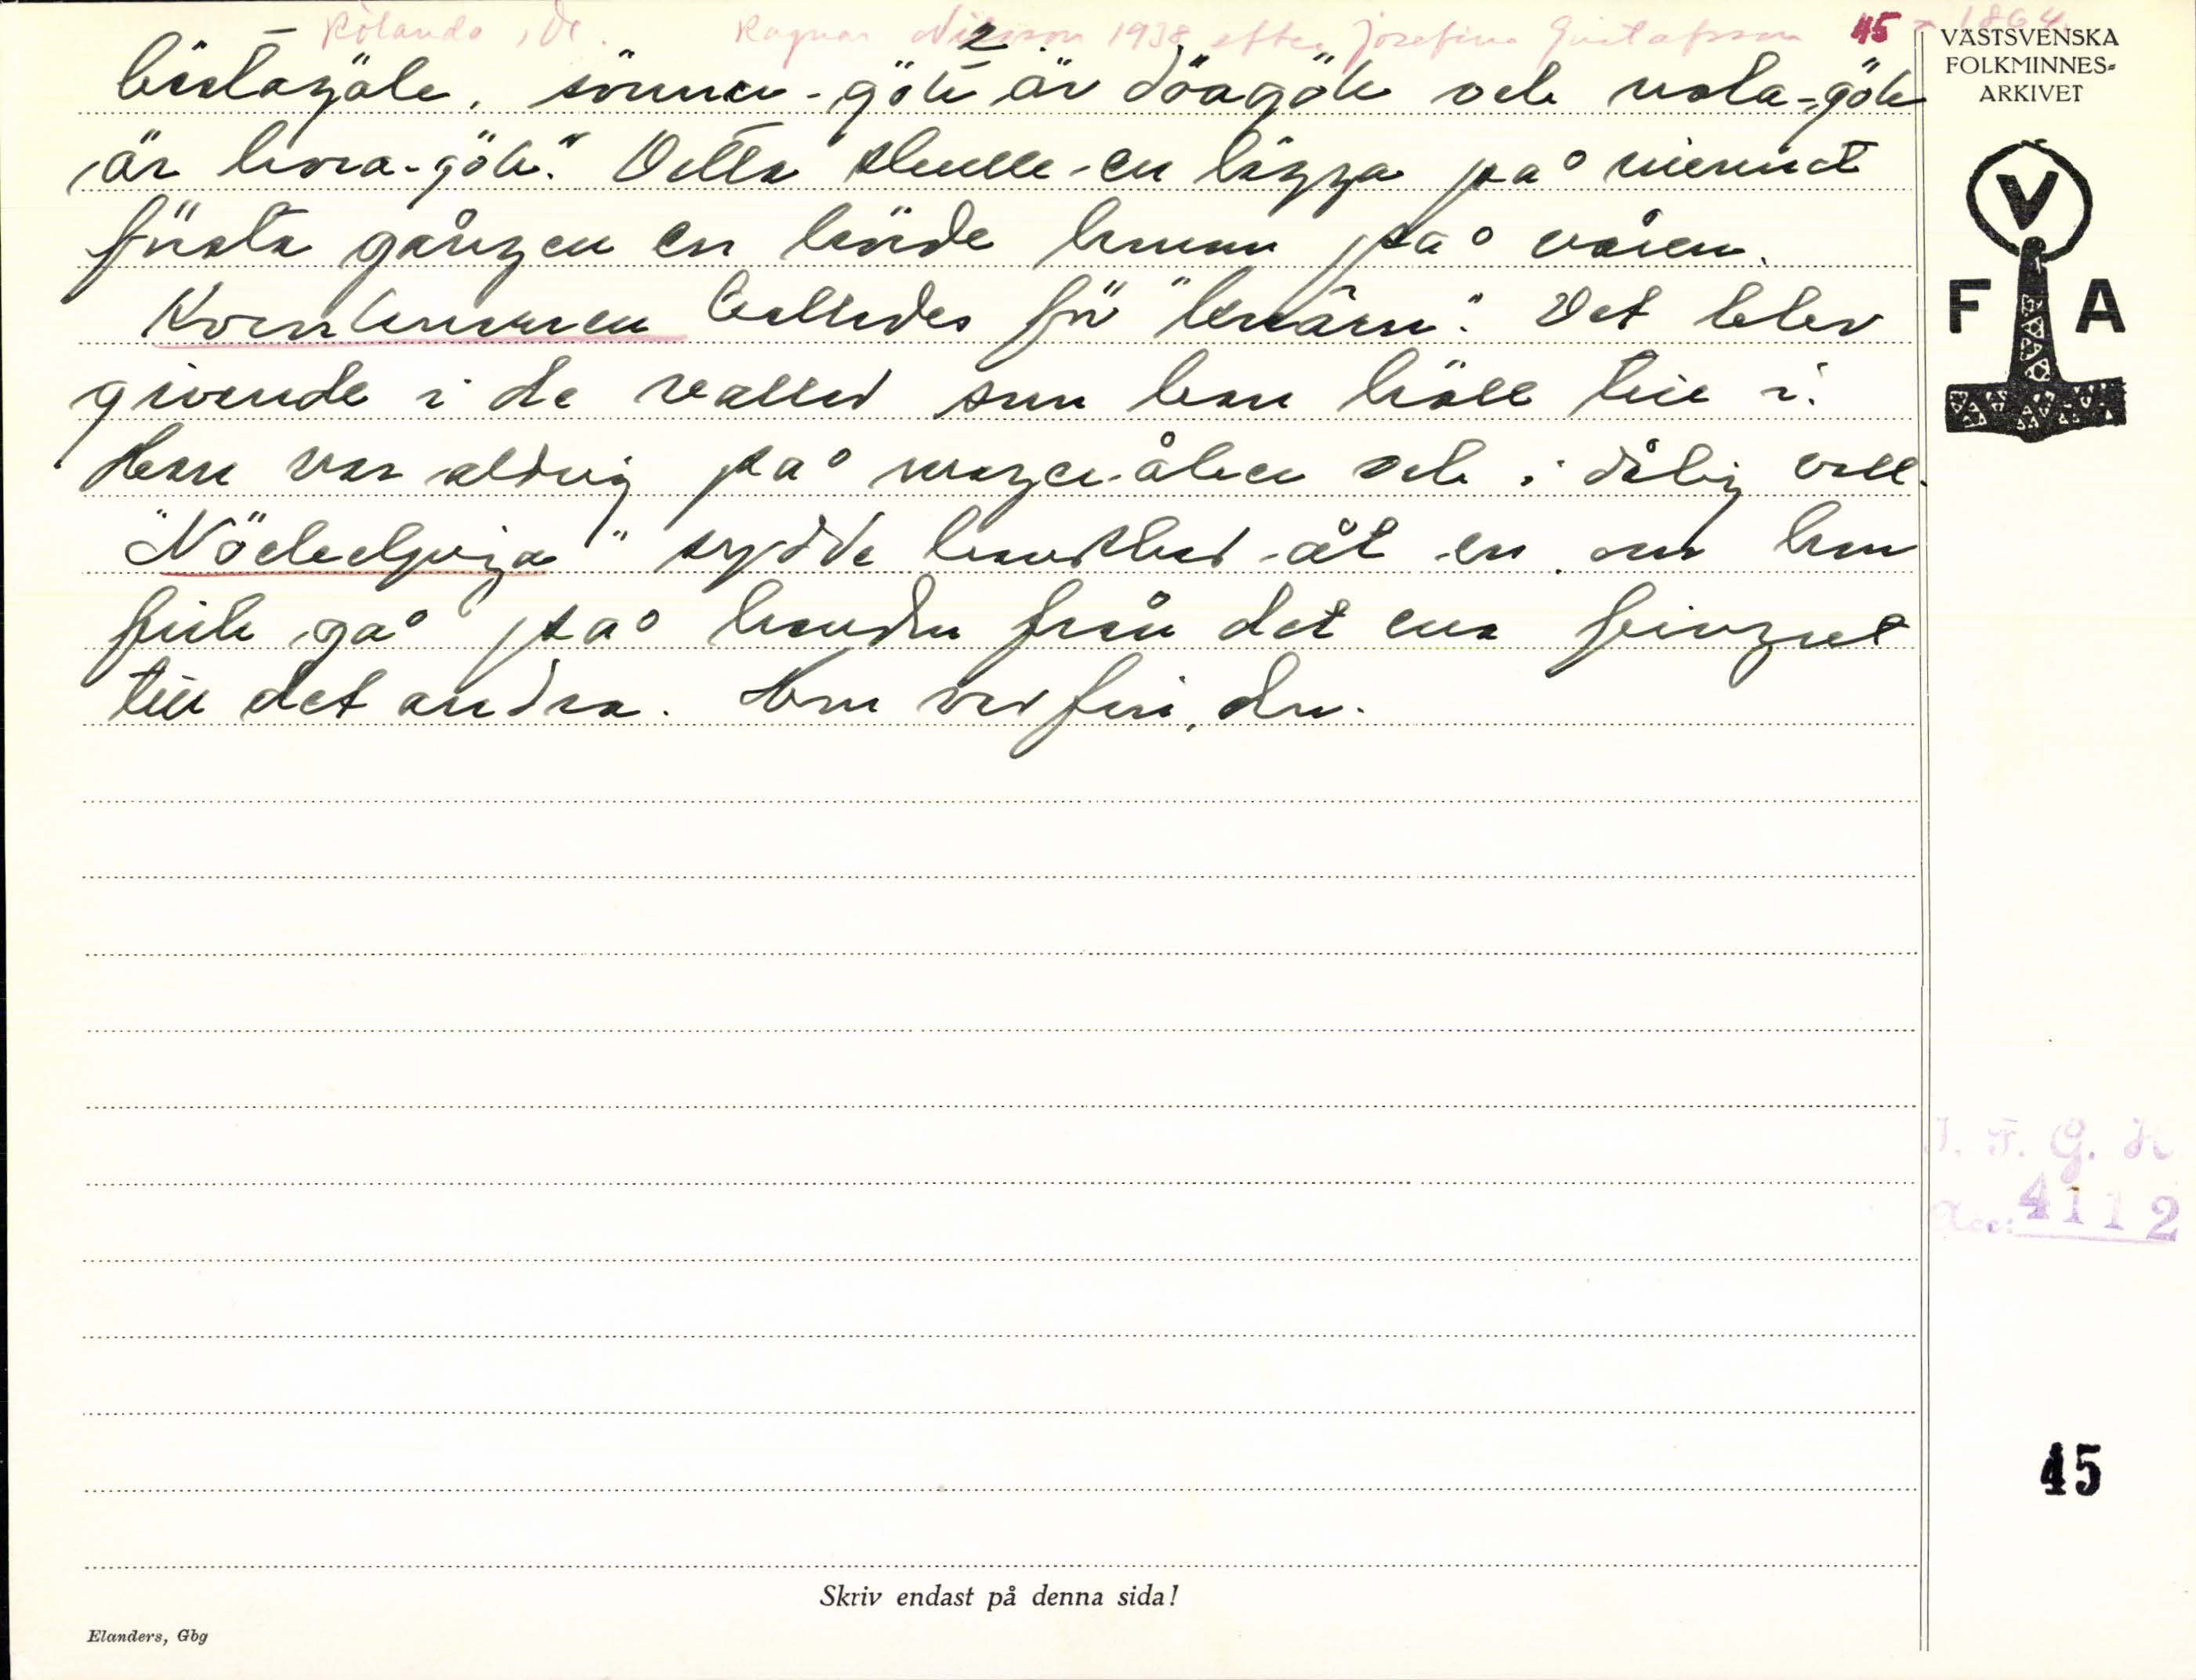 Rölanda, Ds. Ragnar Nilsson 1938 efter Josefina Gustafsson 45 1864
2.
bästagök, sönna-gök är döagök och nola-gök
är hora-gök". Detta skulle en lägga på minnet
första gången en hörde honom på våren.
Kornknarren kalldes för "knärn". Det blev
givende i de vallar som han höll till i.
Han var aldrig på magra åkrar och i dålig vall.
"Nöckelpiga" sydde handskar åt en om hon
fick gå på handen från det ena fingret
till det andra. Hon var fin, den.
VÄSTSVENSKA
FOLKMINNES-
ARKIVET
V
F A
I. F. G. H.
Acc: 4112
45
Skriv endast på denna sida!
Elanders, Gbg